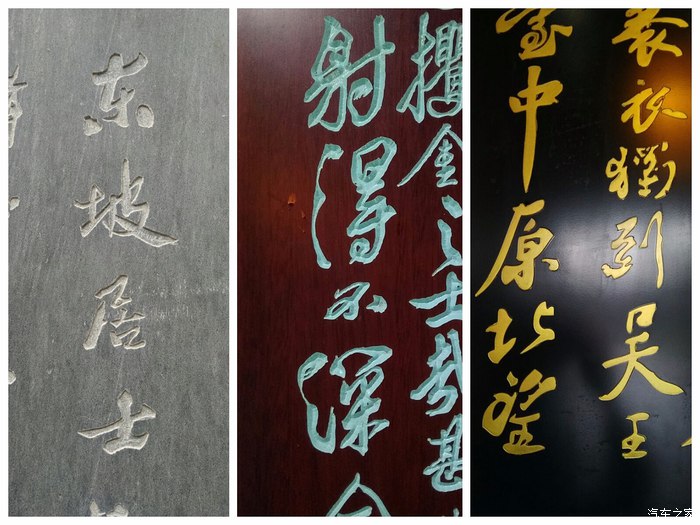 东坡居士
攫金之士哉
射得不深
衣獨到吴王
臺中原北望